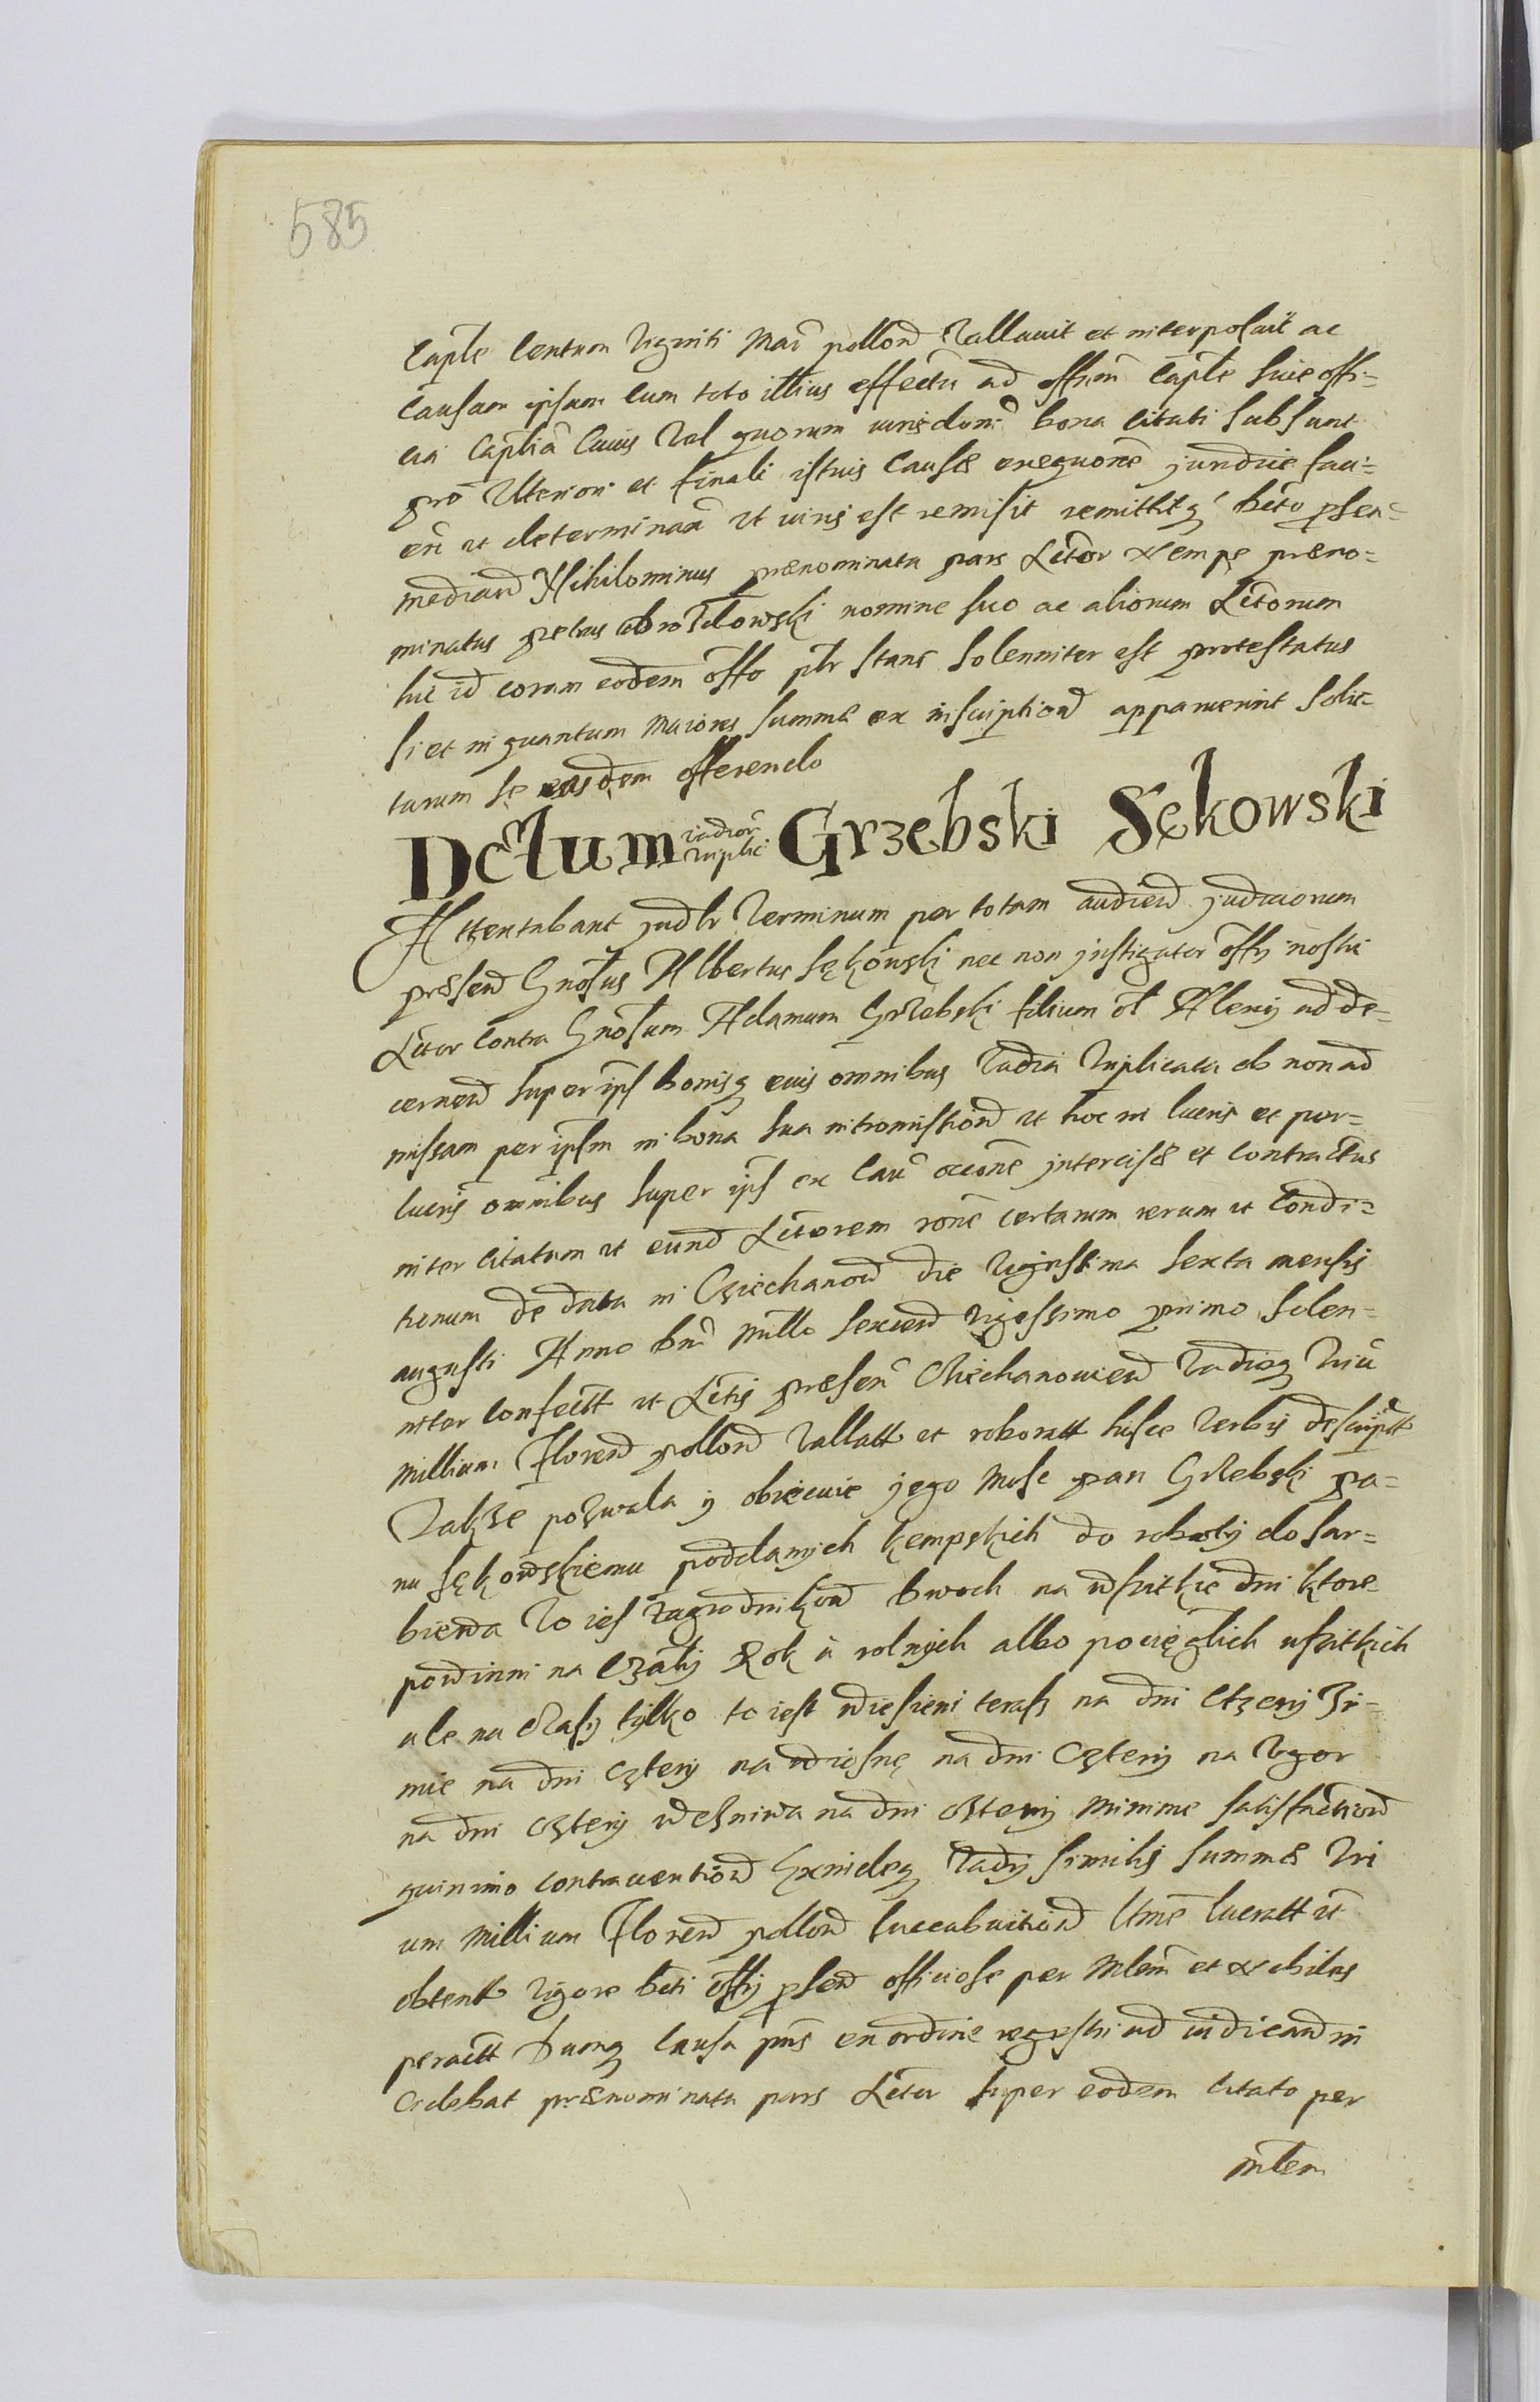 585
Caple Centum Viginti Mar pollon Vallavit et interposuit ac
Causam ipsam cum toto illius effectu ad offium Caple sive offi-
cia Caplia Cuius Vel quorum iurisdoni bona citati subsunt
pro Ulteriori et finali istius Causæ exequone juridice faci-
en et determinan ut iuris est remisit remittitq bcto psen
median Nihilominus prænominata pars Actor Nempe præno-
minatus petrus nomine suo ac aliorum Actorum
hic id coram eodem offo plr stans solenniter est protestatus
si et in quantum maiores summæ ex inscription apparuerint solu-
turum se easdem offerendo
Dctum vadior triplic Grzebski Sękowski
Attentabant judlr Terminum per totam audien judiciorum
præsen Gnosus Albertus Sękowski nec non instigator offy nostri
Actor Contra Gnosum Adamum Grzebski filium ol Alexy ad de-
cernen super ips bonisq eius omnibus Vadia triplicata ob non ad
missam per ipsm in bona sua intromission ut hoc in lucris et per-
lucris omnibus super ips ex Cau occone intercisæ et Contractus
inter Citatum et eund Actorem rone certarum rerum et Condi-
tionum de data in Cziechanow die Vigessima sexta mensis
augusti Anno Dni Millo sexcen vigessimo primo solen-
niter confectt et Actis præsen Ciechanovien Vadioq triu
Millium Floren pollon Vallatt et roboratt hisce Verbis descriptt
Takze pozwala y obiecuie jego Mosc pan Grzebski pa-
nu Sękowskiemu poddanych kempskich do roboty do Sar-
biewa To ies zagrodnikow dwoch na wszitkie dni ktore
powinni na Czały Rok a rolnych albo pocięglich wszitkich
ale na Czasy tylko to iest w iesieni teras na dni Cztery Zi-
mie na dni Cztery na wiosnę na dni Cztery na Ugor
na dni Cztery w na dni Cztery minime satisfaction
quinimo contravention Exindeq Vady similis summæ tri
um Millium Floren pollon succubuition lucratt et
obtentt Vigore bcti offy psen officiose per Mlem et Nobiles
peractt Dumq Causa pns ex ordine regestri ad iudicand in
cidebat prænominata pars Actor super eodem citato per
Mlem